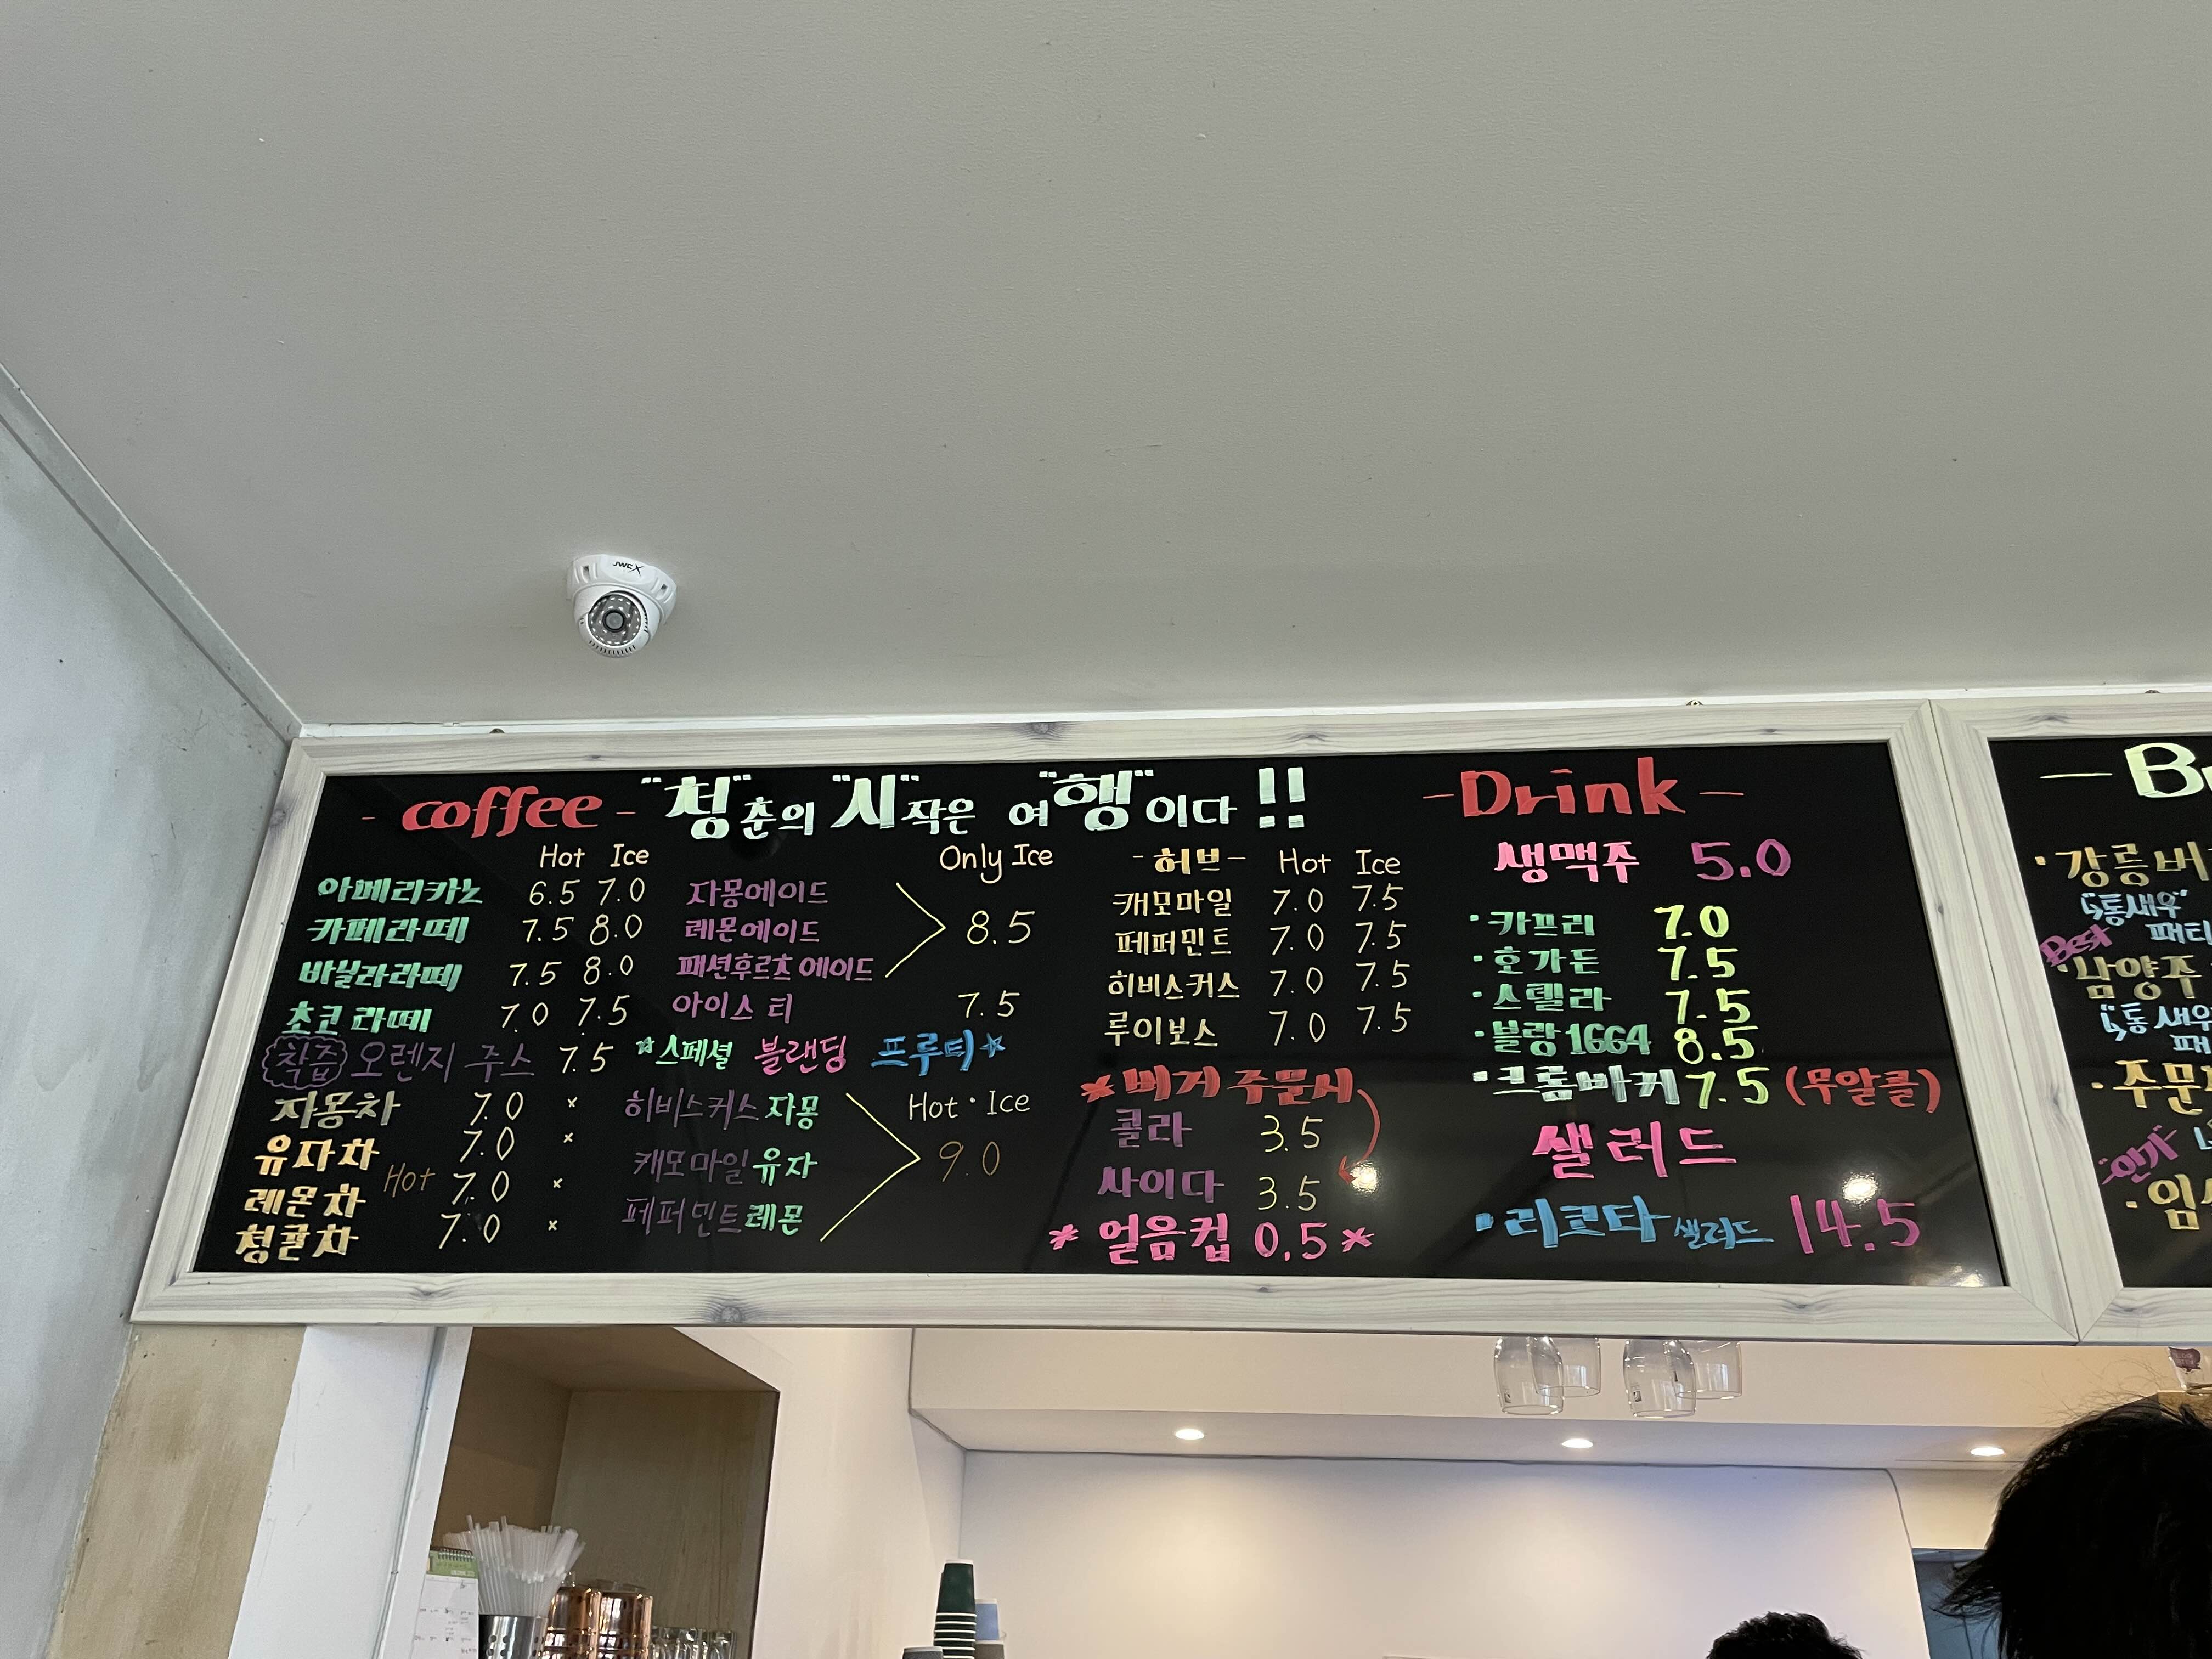 JWC X
- coffee - "청"춘의 "시"작은 여"행"이다 !!
Hot Ice
아메리카노 6.5 7.0
카페라떼 7.5 8.0
바닐라라떼 7.5 8.0
초코 라떼 7.0 7.5
착즙 오렌지 주스 7.5
자몽차 7.0 ×
유자차 7.0 ×
Hot
레몬차 7.0 ×
청귤차 7.0 ×
Only Ice
자몽에이드
레몬에이드 8.5
패션후르츠 에이드
아이스 티 7.5
*스페셜 블랜딩 프루티*
Hot · Ice
히비스커스 자몽
캐모마일 유자 9.0
페퍼민트 레몬
- 허브 - Hot Ice
캐모마일 7.0 7.5
페퍼민트 7.0 7.5
히비스커스 7.0 7.5
루이보스 7.0 7.5
* 버거 주문시
콜라 3.5
사이다 3.5
* 얼음컵 0.5 *
- Drink -
생맥주 5.0
· 카프리 7.0
· 호가든 7.5
· 스텔라 7.5
· 블랑 1664 8.5
· 크롬바커 7.5 (무알콜)
샐러드
· 리코타 샐러드 14.5
· 강릉버
통새우
패티
Best
· 남양주
통새우
패
· 주문
인기